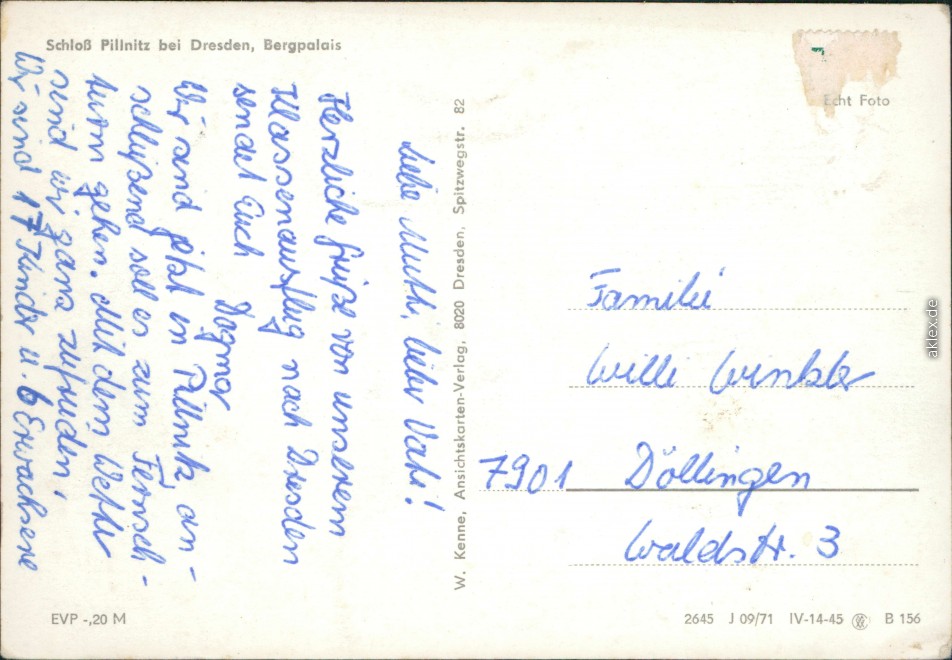 Schloß Pillnitz bei Dresden, Bergpalais
Liebe Mutti, lieber Vati!
Herzliche Grüße von unserem
Klassenausflug nach Dresden
sendet Euch
Dagmar
Wir sind jetzt in Pillnitz an-
schließend soll es zum Fernseh-
turm gehen. Mit dem Wetter
sind wir ganz zufrieden,
Wir sind 17 Kinder u. 6 Erwachsene
W. Kenne, Ansichtskarten-Verlag, 8020 Dresden, Spitzwegstr. 82
Echt Foto
Familie
Willi Winkler
7901 Döllingen
Waldstr. 3
EVP -,20 M
2645 J 09/71 IV-14-45 B 156
aklex.de